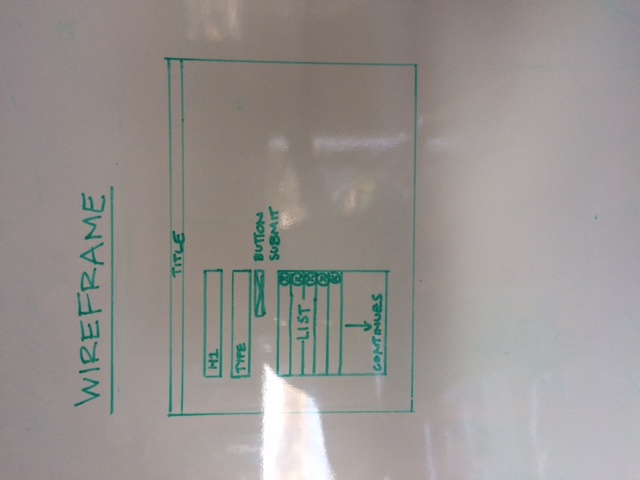 WIREFRAME
TITLE
H1
TYPE
BUTTON
SUBMIT
LIST
CONTINUES